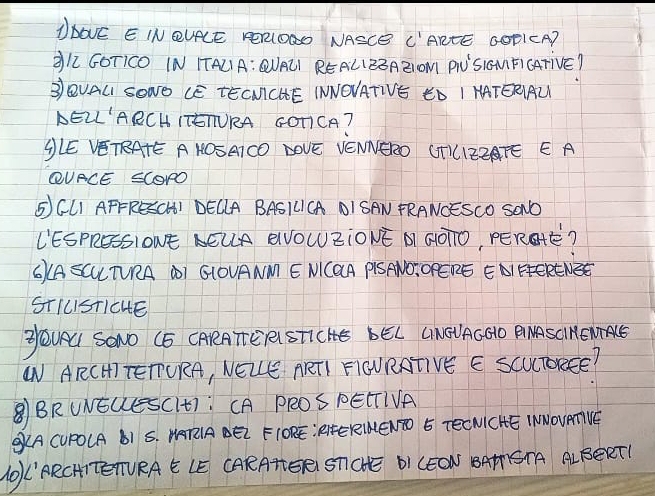 1) DOVE E IN QUALE PERIODO NASCE L'ARTE GOTICA?
2) IL GOTICO IN ITALIA: QUALI REALIZZAZIONI PIU' SIGNIFICATIVE?
3) QUALI SONO LE TECNICHE INNOVATIVE ED I MATERIALI
DELL'ARCHITETTURA GOTICA?
4) LE VETRATE A MOSAICO DOVE VENNERO UTILIZZATE E A
QUALE SCOPO
5) GLI AFFRESCHI DELLA BASILICA DI SAN FRANCESCO SONO
L'ESPRESSIONE DELLA RIVOLUZIONE DI GIOTTO, PERCHE'?
6) LA SCULTURA DI GIOVANNI E NICOLA PISANO: OPERE E DIFFERENZE
STILISTICHE
7) QUALI SONO LE CARATTERISTICHE DEL LINGUAGGIO RINASCIMENTALE
IN ARCHITETTURA, NELLE ARTI FIGURATIVE E SCULTOREE?
8) BRUNELLESCHI: LA PROSPETTIVA
9) LA CUPOLA DI S. MATRIA DEL FIORE: RIFERIMENTO E TECNICHE INNOVATIVE
10) L'ARCHITETTURA E LE CARATTERISTICHE DI LEON BATTISTA ALBERTI